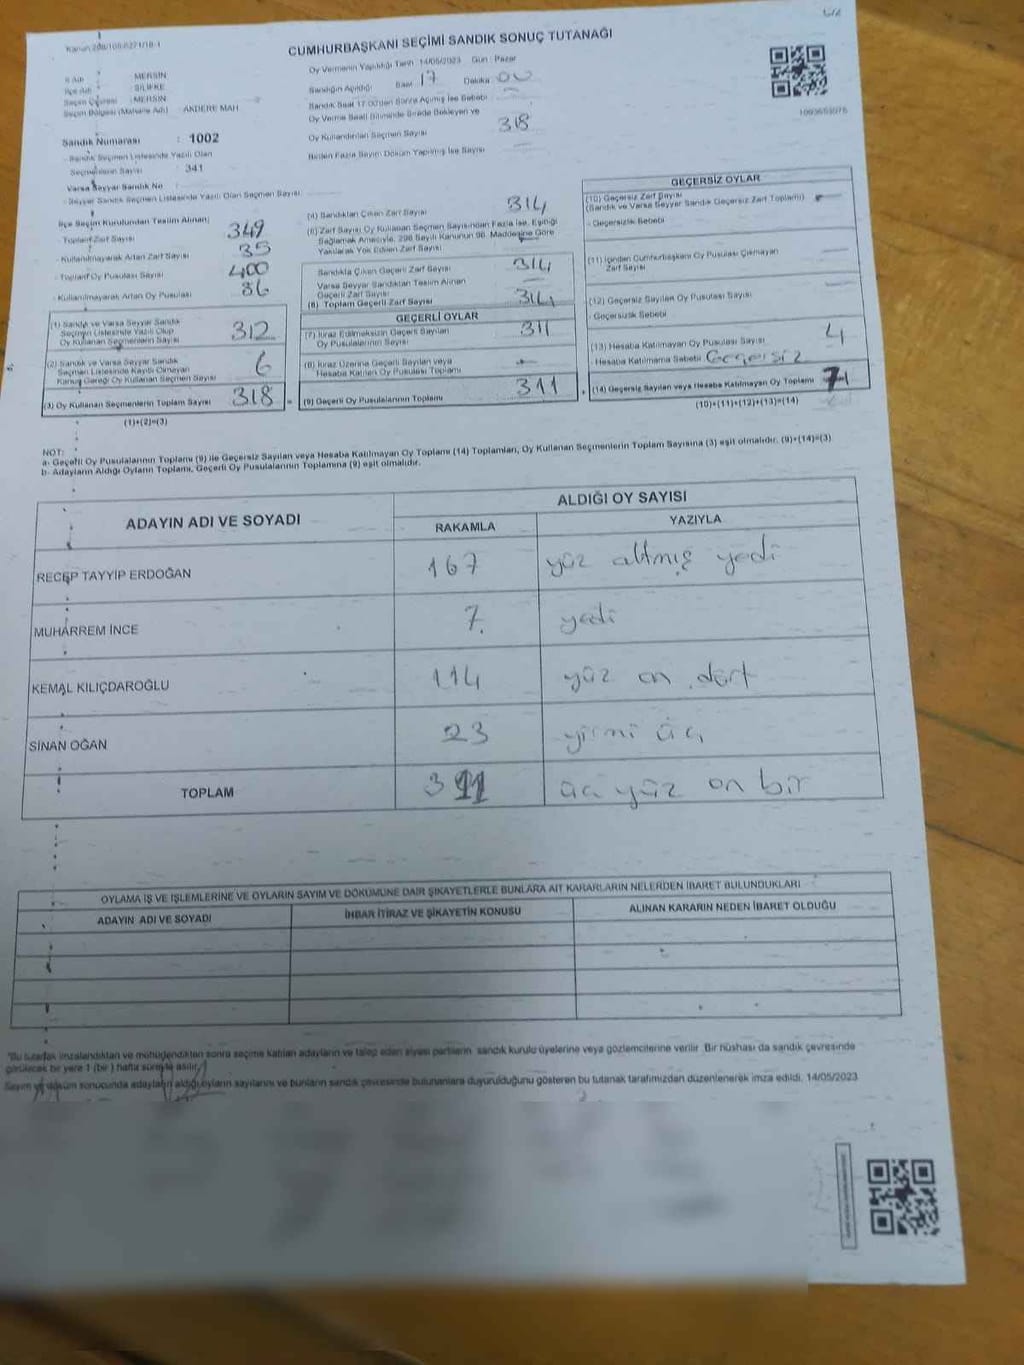 CUMHURBAŞKANI SEÇİMİ SANDIK SONUÇ TUTANAĞI
İl Adı : MERSİN
İlçe Adı : SİLİFKE
Seçim Çevresi : MERSİN
Seçim Bölgesi (Mahalle Adı) : AKDERE MAH
Sandık Numarası : 1002
Sandık Seçmen Listesinde Yazılı Olan
Seçmenlerin Sayısı : 341
Varsa Seyyar Sandık No
Seyyar Sandık Seçmen Listesinde Yazılı Olan Seçmen Sayısı
Oy Vermenin Yapıldığı Tarih 14/05/2023 Gün : Pazar
Sandığın Açıldığı Saat 17 Dakika 00
Sandık Saat 17.00'den Sonra Açılmış İse Sebebi
Oy Verme Saati Bitiminde Sırada Bekleyen ve
Oy Kullandırılan Seçmen Sayısı 318
Birden Fazla Sayım Döküm Yapılmış İse Sayısı
İlçe Seçim Kurulundan Teslim Alınan;
Toplam Zarf Sayısı 349
Kullanılmayarak Artan Zarf Sayısı 35
Toplam Oy Pusulası Sayısı 400
Kullanılmayarak Artan Oy Pusulası 86
(1) Sandık ve Varsa Seyyar Sandık
Seçmen Listesinde Yazılı Olup
Oy Kullanan Seçmenlerin Sayısı 312
(2) Sandık ve Varsa Seyyar Sandık
Seçmen Listesinde Kayıtlı Olmayan
Kanun Gereği Oy Kullanan Seçmen Sayısı 6
(3) Oy Kullanan Seçmenlerin Toplam Sayısı 318
(1)+(2)=(3)
(4) Sandıktan Çıkan Zarf Sayısı 314
(5) Zarf Sayısı Oy Kullanan Seçmen Sayısından Fazla İse, Eşitliği
Sağlamak Amacıyla, 298 Sayılı Kanunun 98. Maddesine Göre
Yakılarak Yok Edilen Zarf Sayısı
Sandıkta Çıkan Geçerli Zarf Sayısı 314
Varsa Seyyar Sandıktan Teslim Alınan
Geçerli Zarf Sayısı
(6) Toplam Geçerli Zarf Sayısı 314
GEÇERLİ OYLAR
(7) İtiraz Edilmeksizin Geçerli Sayılan
Oy Pusulalarının Sayısı 311
(8) İtiraz Üzerine Geçerli Sayılan veya
Hesaba Katılan Oy Pusulası Toplamı
(9) Geçerli Oy Pusulalarının Toplamı 311
GEÇERSİZ OYLAR
(10) Geçersiz Zarf Sayısı
(Sandık ve Varsa Seyyar Sandık Geçersiz Zarf Toplamı)
Geçersizlik Sebebi
(11) İçinden Cumhurbaşkanı Oy Pusulası Çıkmayan
Zarf Sayısı
(12) Geçersiz Sayılan Oy Pusulası Sayısı
Geçersizlik Sebebi
(13) Hesaba Katılmayan Oy Pusulası Sayısı 4
Hesaba Katılmama Sebebi Geçersiz
(14) Geçersiz Sayılan veya Hesaba Katılmayan Oy Toplamı 7
(10)+(11)+(12)+(13)=(14)
NOT:
a- Geçerli Oy Pusulalarının Toplamı (9) ile Geçersiz Sayılan veya Hesaba Katılmayan Oy Toplamı (14) Toplamları, Oy Kullanan Seçmenlerin Toplam Sayısına (3) eşit olmalıdır. (9)+(14)=(3)
b- Adayların Aldığı Oyların Toplamı, Geçerli Oy Pusulalarının Toplamına (9) eşit olmalıdır.
ADAYIN ADI VE SOYADI ALDIĞI OY SAYISI
RAKAMLA YAZIYLA
RECEP TAYYİP ERDOĞAN 167 yüz altmış yedi
MUHARREM İNCE 7 yedi
KEMAL KILIÇDAROĞLU 114 yüz on dört
SİNAN OĞAN 23 yirmi üç
TOPLAM 311 üç yüz on bir
OYLAMA İŞ VE İŞLEMLERİNE VE OYLARIN SAYIM VE DÖKÜMÜNE DAİR ŞİKAYETLERLE BUNLARA AİT KARARLARIN NELERDEN İBARET BULUNDUKLARI
ADAYIN ADI VE SOYADI İHBAR İTİRAZ VE ŞİKAYETİN KONUSU ALINAN KARARIN NEDEN İBARET OLDUĞU
"Bu tutanak imzalandıktan ve mühürlendikten sonra seçime katılan adayların ve talep eden siyasi partilerin sandık kurulu üyelerine veya gözlemcilerine verilir. Bir nüshası da sandık çevresinde
görülecek bir yere 1 (bir) hafta süreyle asılır.
Sayım ve döküm sonucunda adayların aldığı oyların sayılarını ve bunların sandık çevresinde bulunanlara duyurulduğunu gösteren bu tutanak tarafımızdan düzenlenerek imza edildi. 14/05/2023